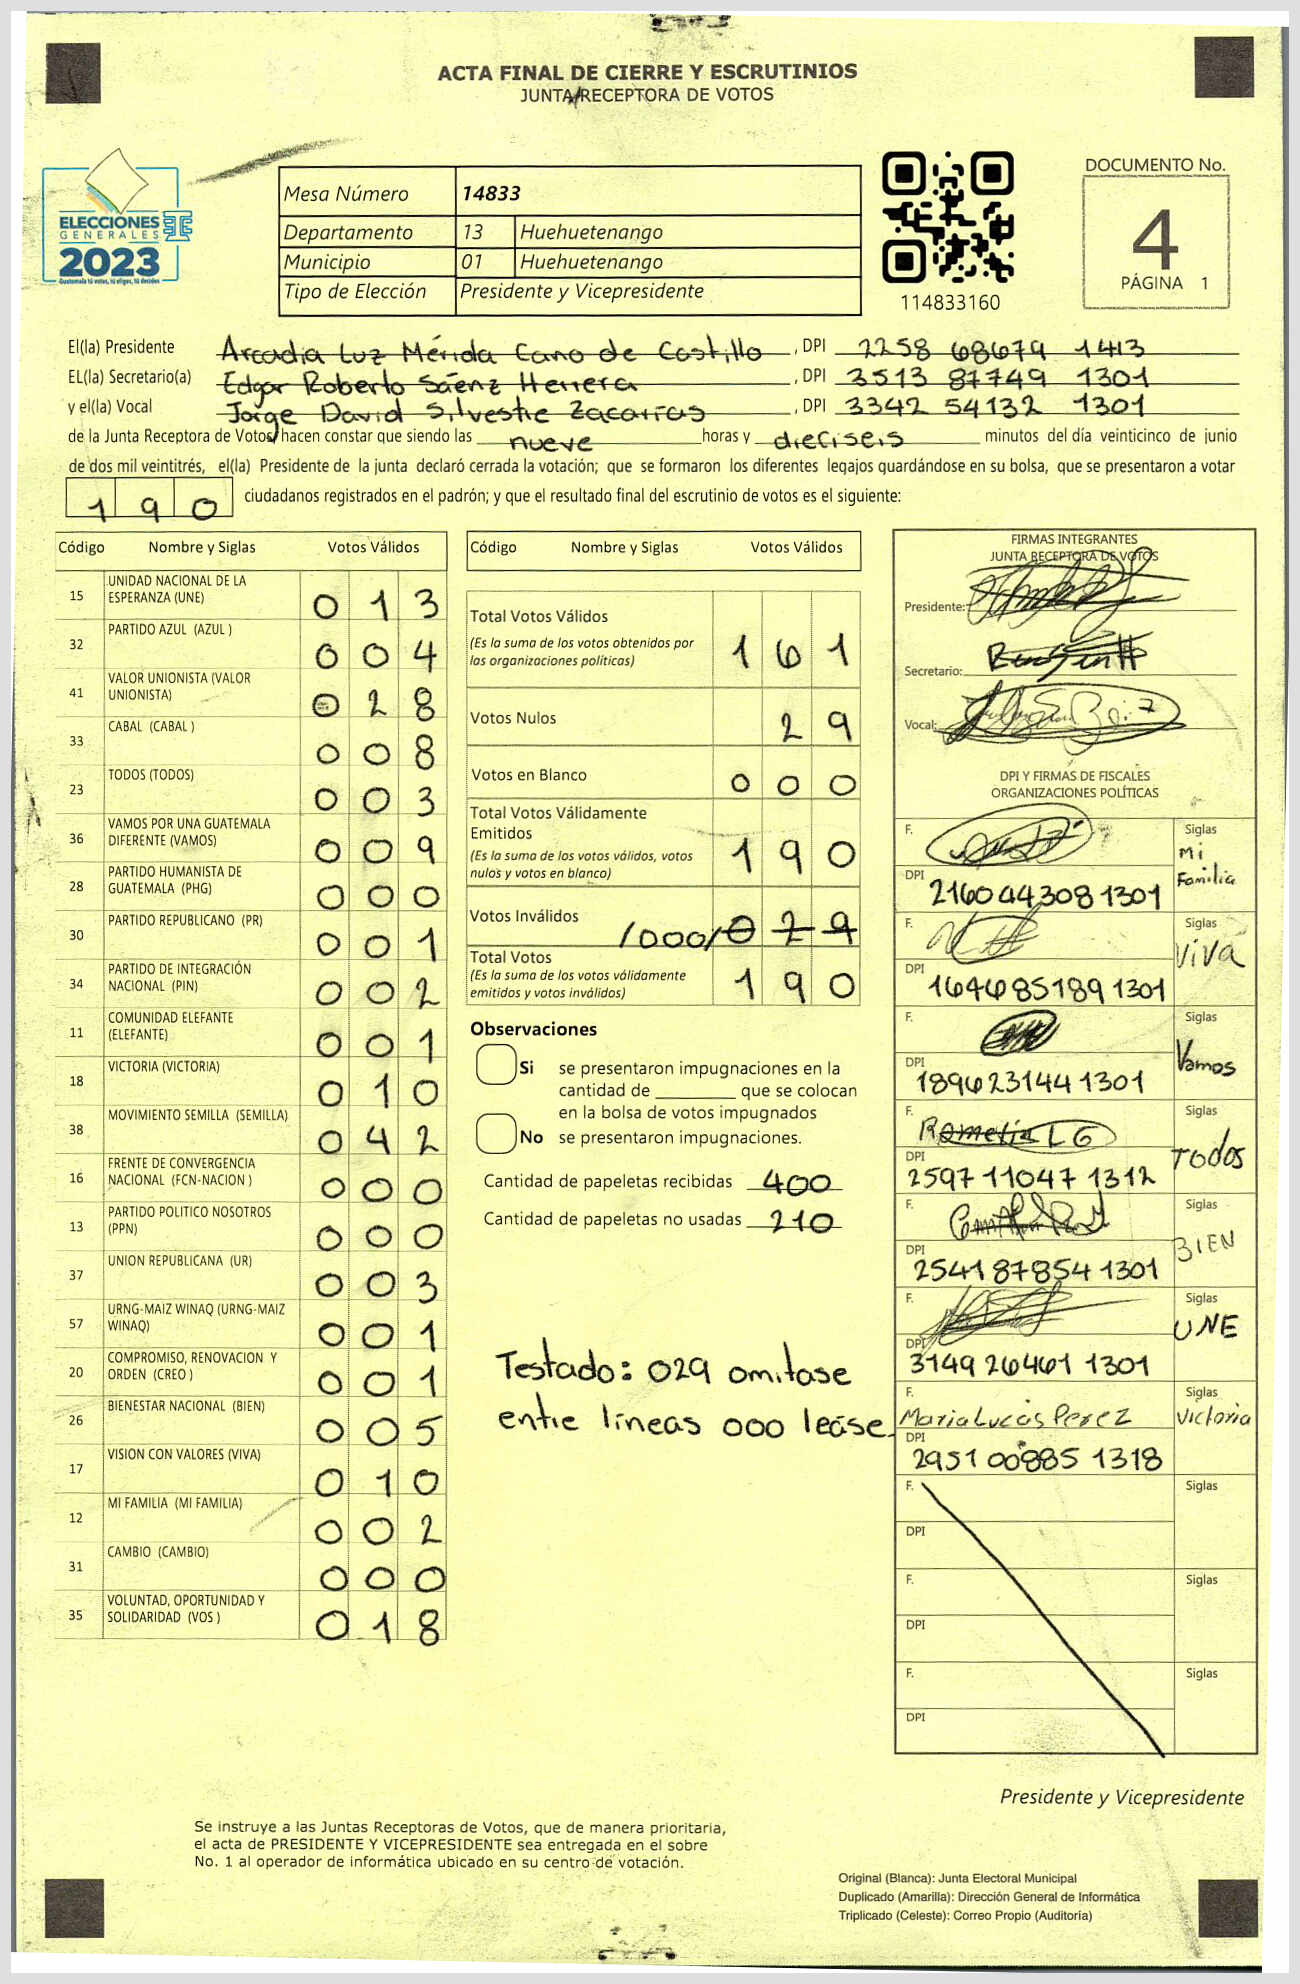 ACTA FINAL DE CIERRE Y ESCRUTINIOS
JUNTA RECEPTORA DE VOTOS
ELECCIONES
GENERALES
2023
Guatemala tú votas, tú eliges, tú decides
Mesa Número 14833
Departamento 13 Huehuetenango
Municipio 01 Huehuetenango
Tipo de Elección Presidente y Vicepresidente
114833160
DOCUMENTO No.
4
PÁGINA 1
El(la) Presidente Arcadia Luz Mérida Cano de Castillo, DPI 2258 68679 1413
EL(la) Secretario(a) Edgar Roberto Sáenz Herrera, DPI 3513 87749 1301
y el(la) Vocal Jorge David Silvestre Zacarías, DPI 3342 54132 1301
de la Junta Receptora de Votos, hacen constar que siendo las nueve horas y dieciseis minutos del día veinticinco de junio
de dos mil veintitrés, el(la) Presidente de la junta declaró cerrada la votación; que se formaron los diferentes legajos quardándose en su bolsa, que se presentaron a votar
190 ciudadanos registrados en el padrón; y que el resultado final del escrutinio de votos es el siguiente:
Código Nombre y Siglas Votos Válidos
15 UNIDAD NACIONAL DE LA ESPERANZA (UNE) 013
32 PARTIDO AZUL (AZUL ) 004
41 VALOR UNIONISTA (VALOR UNIONISTA) 028
33 CABAL (CABAL ) 008
23 TODOS (TODOS) 003
36 VAMOS POR UNA GUATEMALA DIFERENTE (VAMOS) 009
28 PARTIDO HUMANISTA DE GUATEMALA (PHG) 000
30 PARTIDO REPUBLICANO (PR) 001
34 PARTIDO DE INTEGRACIÓN NACIONAL (PIN) 002
11 COMUNIDAD ELEFANTE (ELEFANTE) 001
18 VICTORIA (VICTORIA) 010
38 MOVIMIENTO SEMILLA (SEMILLA) 042
16 FRENTE DE CONVERGENCIA NACIONAL (FCN-NACION ) 000
13 PARTIDO POLITICO NOSOTROS (PPN) 000
37 UNION REPUBLICANA (UR) 003
57 URNG-MAIZ WINAQ (URNG-MAIZ WINAQ) 001
20 COMPROMISO, RENOVACION Y ORDEN (CREO ) 001
26 BIENESTAR NACIONAL (BIEN) 005
17 VISION CON VALORES (VIVA) 010
12 MI FAMILIA (MI FAMILIA) 002
31 CAMBIO (CAMBIO) 000
35 VOLUNTAD, OPORTUNIDAD Y SOLIDARIDAD (VOS ) 018
Código Nombre y Siglas Votos Válidos
Total Votos Válidos 161
(Es la suma de los votos obtenidos por
las organizaciones políticas)
Votos Nulos 29
Votos en Blanco 000
Total Votos Válidamente
Emitidos 190
(Es la suma de los votos válidos, votos
nulos y votos en blanco)
Votos Inválidos /000/ 029
Total Votos 190
(Es la suma de los votos válidamente
emitidos y votos inválidos)
Observaciones
Si se presentaron impugnaciones en la
cantidad de ________ que se colocan
en la bolsa de votos impugnados
No se presentaron impugnaciones.
Cantidad de papeletas recibidas 400
Cantidad de papeletas no usadas 210
Testado: 029 omitase
entre líneas 000 leáse.
FIRMAS INTEGRANTES
JUNTA RECEPTORA DE VOTOS
Presidente:
Secretario:
Vocal:
DPI Y FIRMAS DE FISCALES
ORGANIZACIONES POLÍTICAS
F. Siglas Mi Familia
DPI 2160 44308 1301
F. Siglas VIVA
DPI 1646 85189 1301
F. Siglas Vamos
DPI 1896 23144 1301
F. Romelia L G Siglas TODOS
DPI 2597 11047 1312
F. Siglas BIEN
DPI 2541 87854 1301
F. Siglas UNE
DPI 3149 26461 1301
F. Maria Lucas Perez Siglas Victoria
DPI 2951 00885 1318
F. Siglas
DPI
F. Siglas
DPI
F. Siglas
DPI
Presidente y Vicepresidente
Se instruye a las Juntas Receptoras de Votos, que de manera prioritaria,
el acta de PRESIDENTE Y VICEPRESIDENTE sea entregada en el sobre
No. 1 al operador de informática ubicado en su centro de votación.
Original (Blanca): Junta Electoral Municipal
Duplicado (Amarilla): Dirección General de Informática
Triplicado (Celeste): Correo Propio (Auditoría)